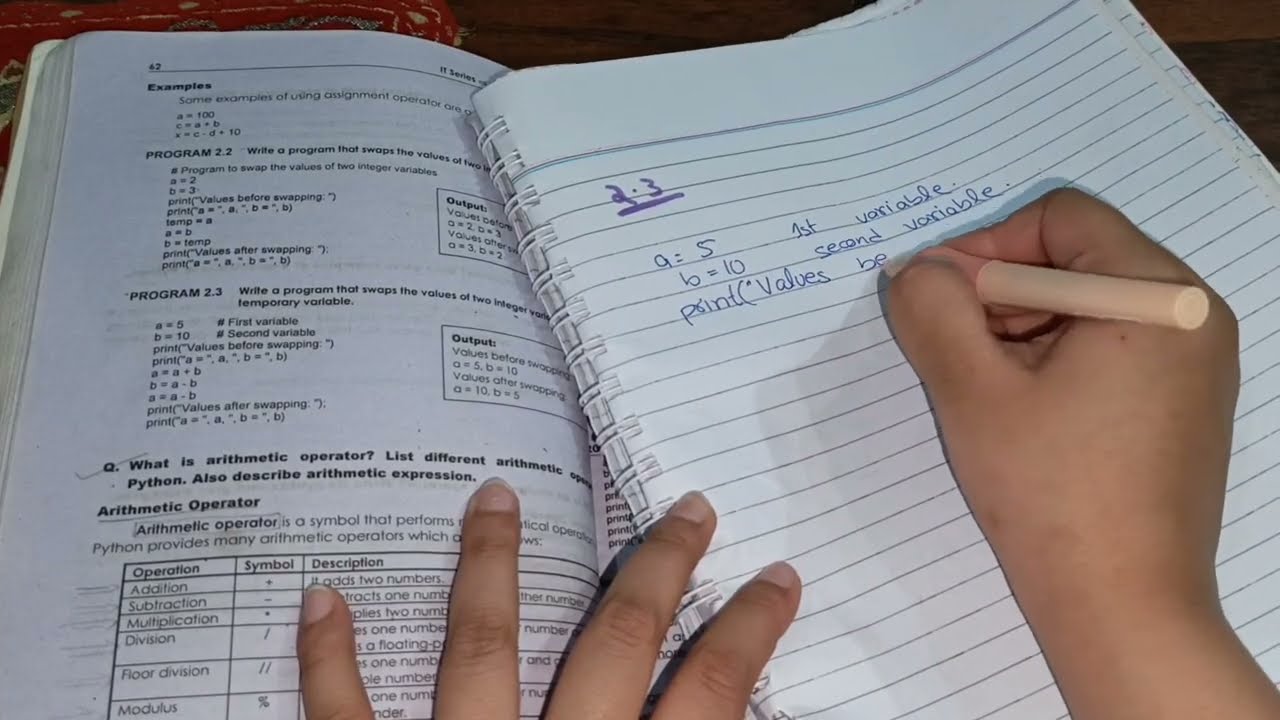 62
IT Series
Examples
Some examples of using assignment operator are
a = 100
c = a + b
x = c - d + 10
PROGRAM 2.2 Write a program that swaps the values of two
# Program to swap the values of two integer variables
a = 2
b = 3
print("Values before swapping: ")
print("a = ", a, ", b = ", b)
temp = a
a = b
b = temp
print("Values after swapping: ");
print("a = ", a, ", b = ", b)
Output:
Values before
a = 2, b = 3
Values after
a = 3, b = 2
PROGRAM 2.3 Write a program that swaps the values of two integer
temporary variable.
a = 5 # First variable
b = 10 # Second variable
print("Values before swapping: ")
print("a = ", a, ", b = ", b)
a = a + b
b = a - b
a = a - b
print("Values after swapping: ");
print("a = ", a, ", b = ", b)
Output:
Values before swapping
a = 5, b = 10
Values after swapping
a = 10, b = 5
Q. What is arithmetic operator? List different arithmetic
Python. Also describe arithmetic expression.
Arithmetic Operator
Arithmetic operator is a symbol that performs
Python provides many arithmetic operators which
Operation Symbol Description
Addition + It adds two numbers.
Subtraction – one
Multiplication * two
Division / one number
is a floating-
Floor division // one number
Modulus % one number
2.3
a = 5 1st variable.
b = 10 second variable.
print("Values be